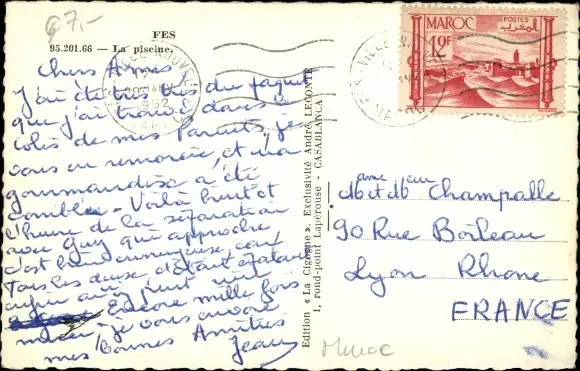 97.-
FES
95.201.66 — La piscine.
Chers Amis
J'ai été très
que j'ai trouvé dans le
colis de mes Parents, je
vous en remercie, et ma
gourmandise a été
comblée. Voilà huit
l'heure de la séparation
avec Guy qui approche,
c'est bien ennuyeux, car
Tous les deux
Encore mille fois
merci, je vous envoie
mes bonnes Amitiés
Jean
Edition « La Cigogne ». Exclusivité André LECONTE
1, rond-point Lapérouse - CASABLANCA
FES-VILLE NOUVELLE
1952
MAROC
POSTES
المغرب
10F
Mme et Mr Champalle
90 Rue Boileau
Lyon Rhone
FRANCE
Maroc